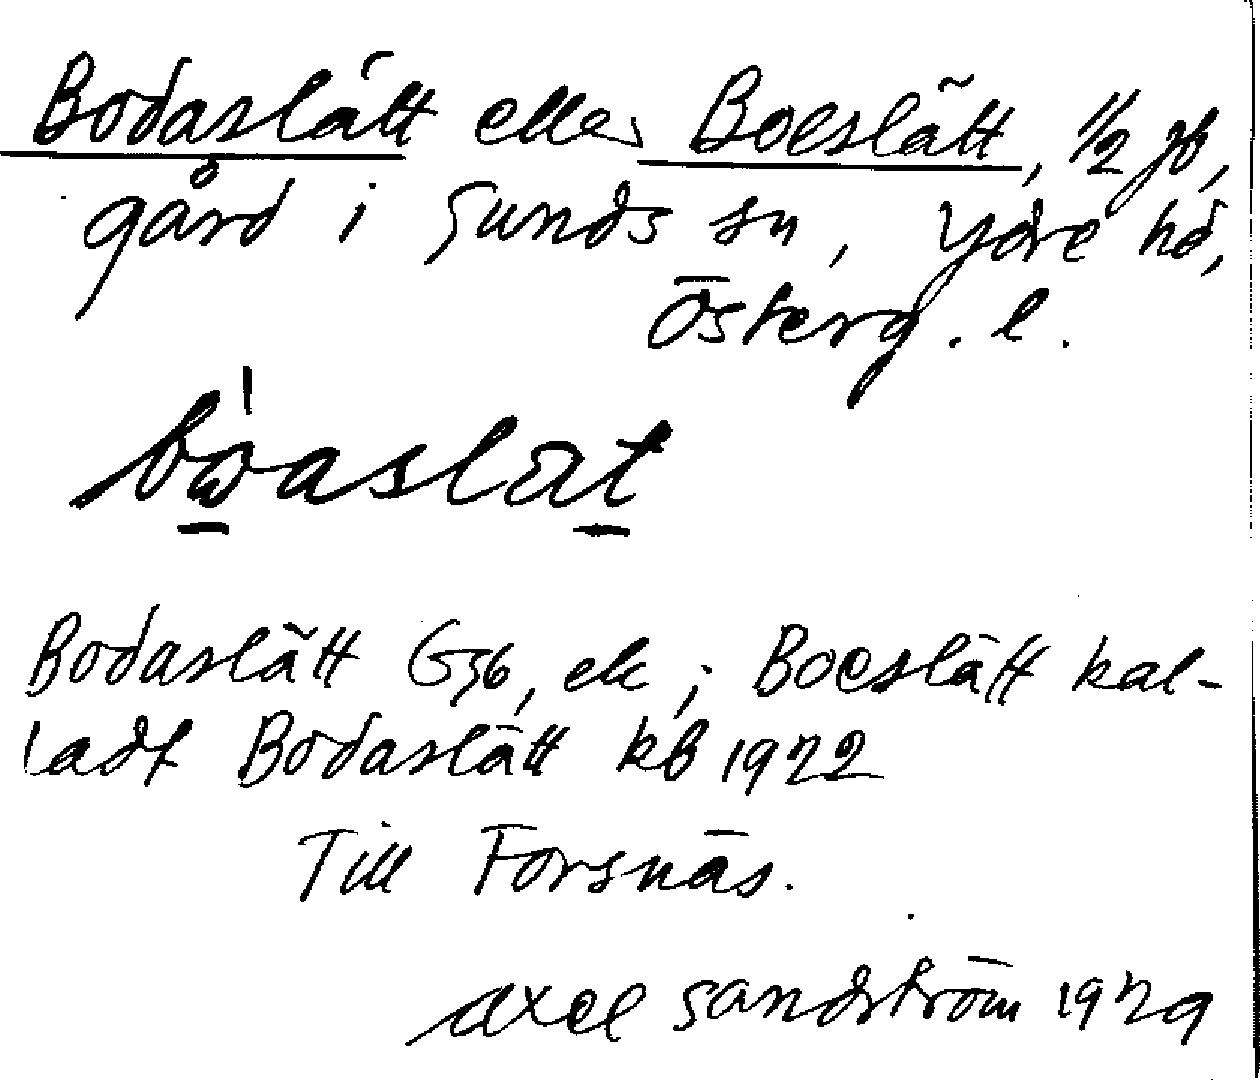 Bodaslätt eller Boeslätt, 1/2 jb,
gård i Sunds sn, Ydre hd,
Österg. l.
Bodaslätt G36, ek; Boeslätt kal-
ladt Bodaslätt kb 1922
Till Forsnäs.
Axel Sandström 1929